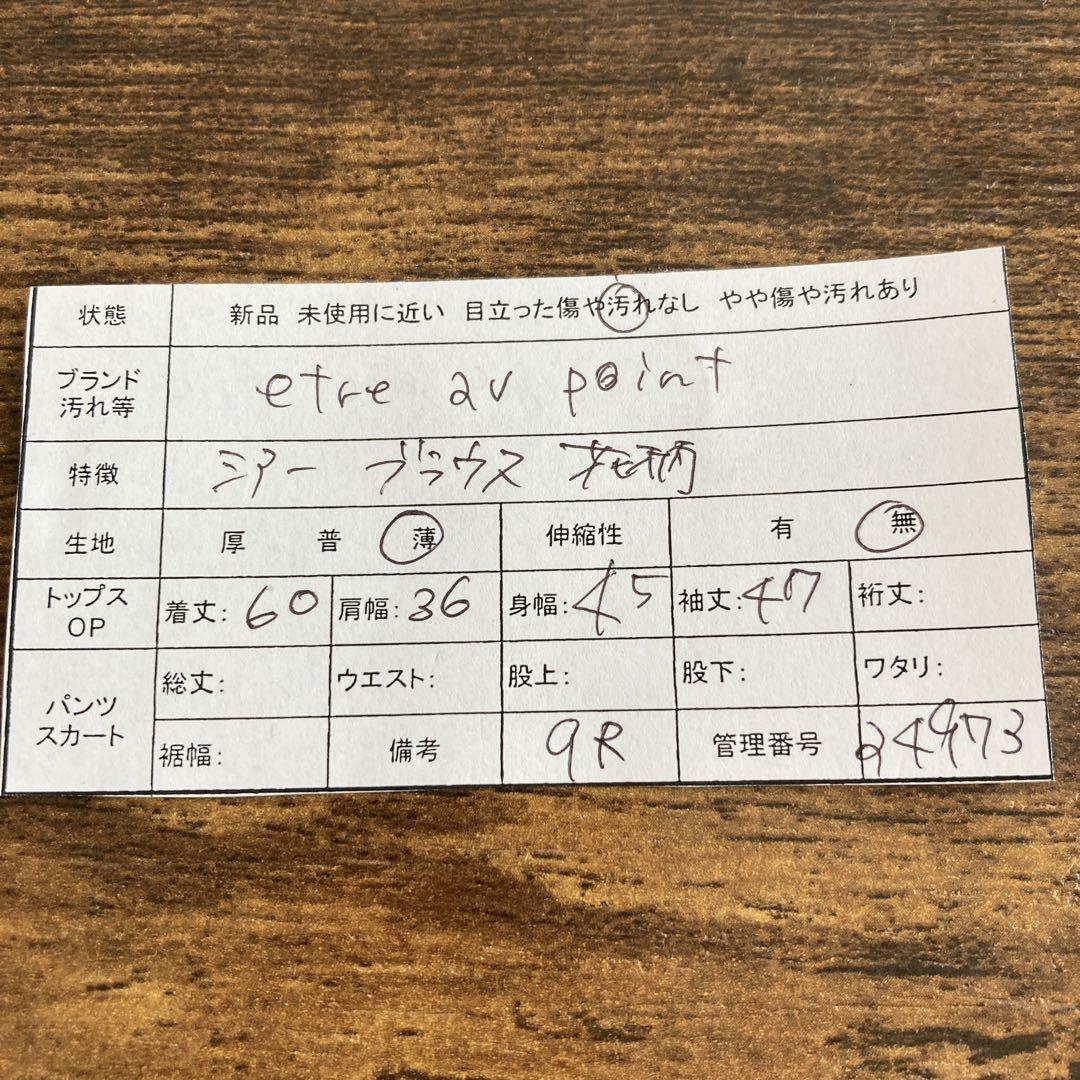 状態 新品 未使用に近い 目立った傷や汚れなし やや傷や汚れあり
ブランド 汚れ等 etre av point
特徴 シアー ブラウス 花柄
生地 厚 普 薄 伸縮性 有 無
トップス OP 着丈: 60 肩幅: 36 身幅: 45 袖丈: 47 裄丈:
パンツ スカート 総丈: ウエスト: 股上: 股下: ワタリ:
裾幅: 備考 9R 管理番号 24973